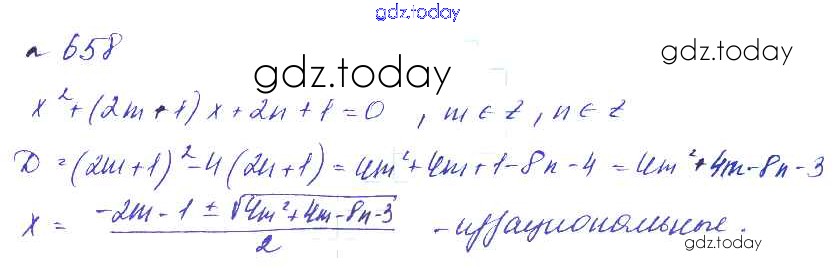 gdz.today
n 658
gdz.today
gdz.today
x² + (2m + 1) x + 2n + 1 = 0 , m ∈ z , n ∈ z
D = (2m + 1)² - 4 (2n + 1) = 4m² + 4m + 1 - 8n - 4 = 4m² + 4m - 8n - 3
x = (-2m - 1 ± √(4m² + 4m - 8n - 3)) / 2 - иррациональные.
gdz.today
gdz.today